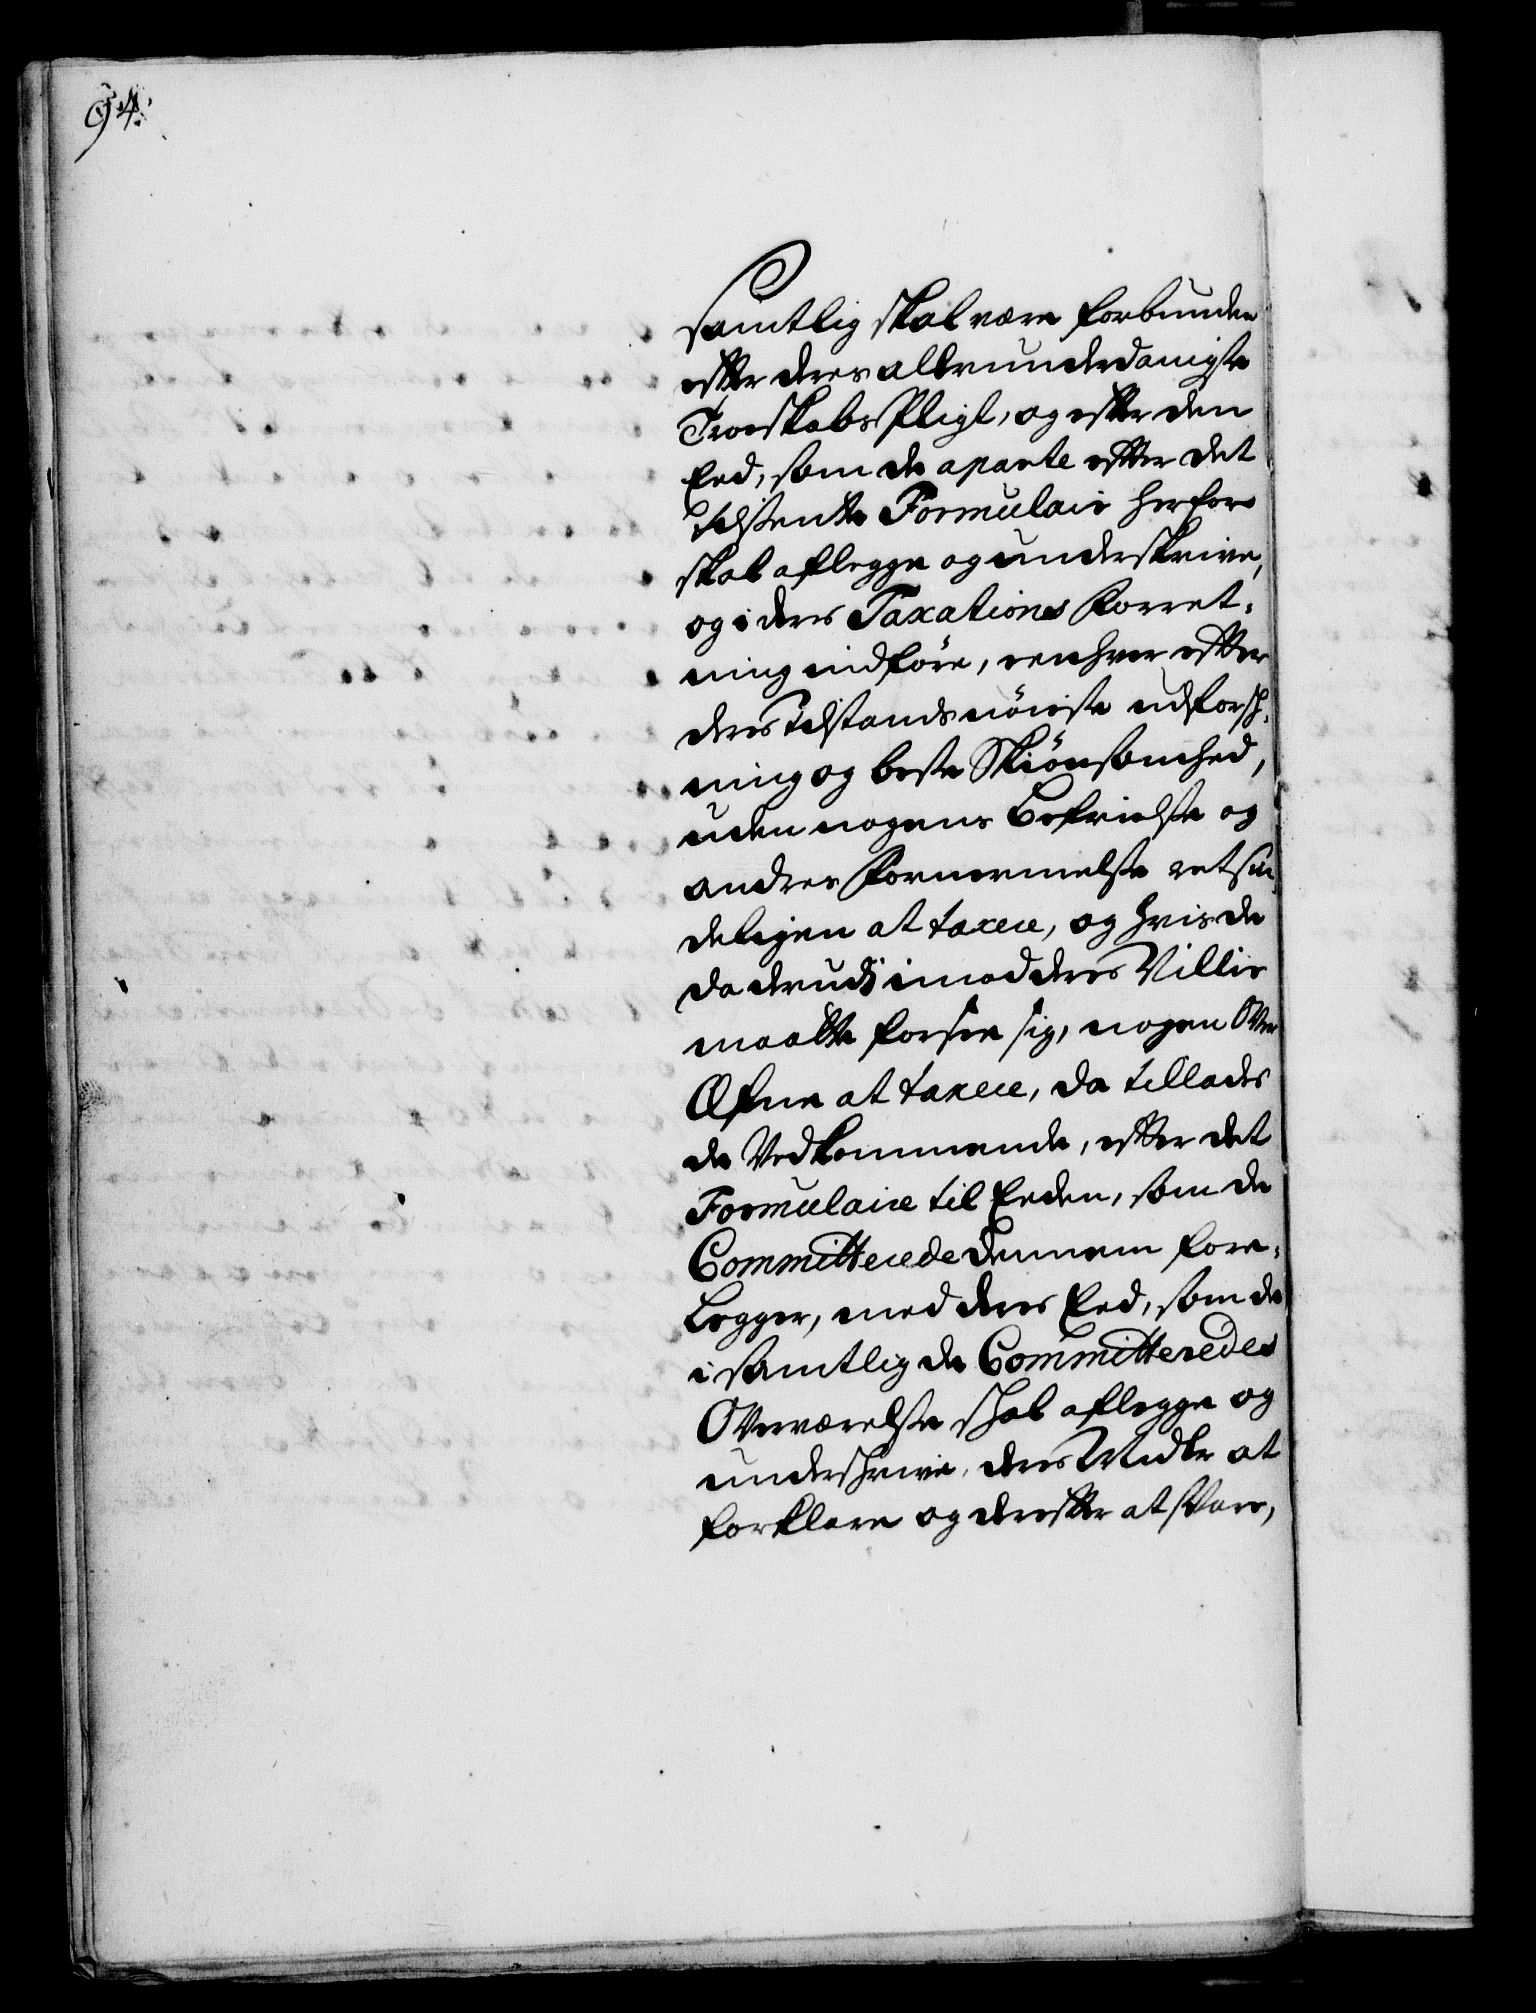 94.
Samtlig skal være forbunden
efter deres allerunderdanigste
Troeskabs Pligt, og efter den
Eed, som de aparte efter det
tilsendte Formulair herfor
skal aflegge og underskrive,
og i deres Taxations Forret-
ning indføre, een hver efter
deres Tilstands nöieste udforsk-
ning og beste Skiönsomhed,
uden nogens Befrielse og
andres Fornermelse retsin-
deligen at taxere, og hvis de
da derudi imod deres Villie
maatte forsee sig, nogen Over
Æfne at taxere, da tillades
de Vedkommende, efter det
Formulaire til Eeden, som de
Committerede dennem fore-
legger, med deres Eed, som de
i samtlig de Committeredes
Overværelse skal aflegge og
underskrive, deres Midler at
forklare og derefter at svare,